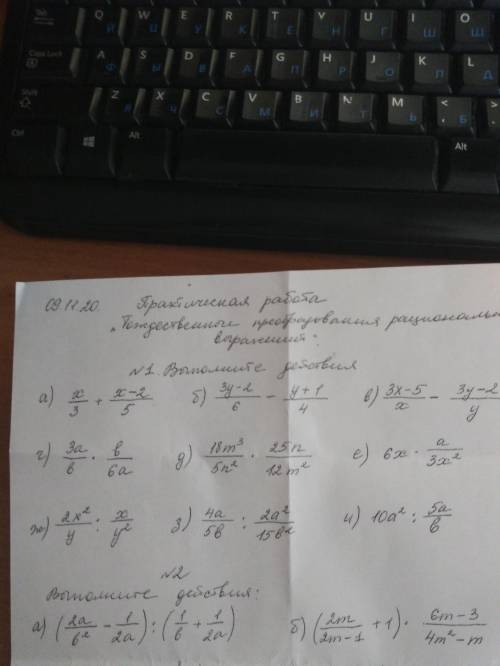 Q Й W Ц E У R К T Е Y Н U Г I Ш O Щ
Caps Lock A Ф S Ы D В F А G П H Р J О K Л L Д
Shift Z Я X Ч C С V М B И N Т M Ь < , Б
Ctrl Alt Alt
09.11.20. Практическая работа
„Тождественные преобразования рациональн
выражений".
№1. Выполните действия
а) x/3 + (x-2)/5 б) (3y-2)/6 - (y+1)/4 в) (3x-5)/x - (3y-2)/y
г) 3a/b · b/6a д) 18m³/5n² · 25n/12m² е) 6x · a/3x²
ж) 2x²/y : x/y² з) 4a/5b : 2a²/15b² и) 10a² : 5a/b
№2
Выполните действия:
а) (2a/b² - 1/2a) : (1/b + 1/2a) б) (2m/(2m-1) + 1) · (6m-3)/(4m²-m)